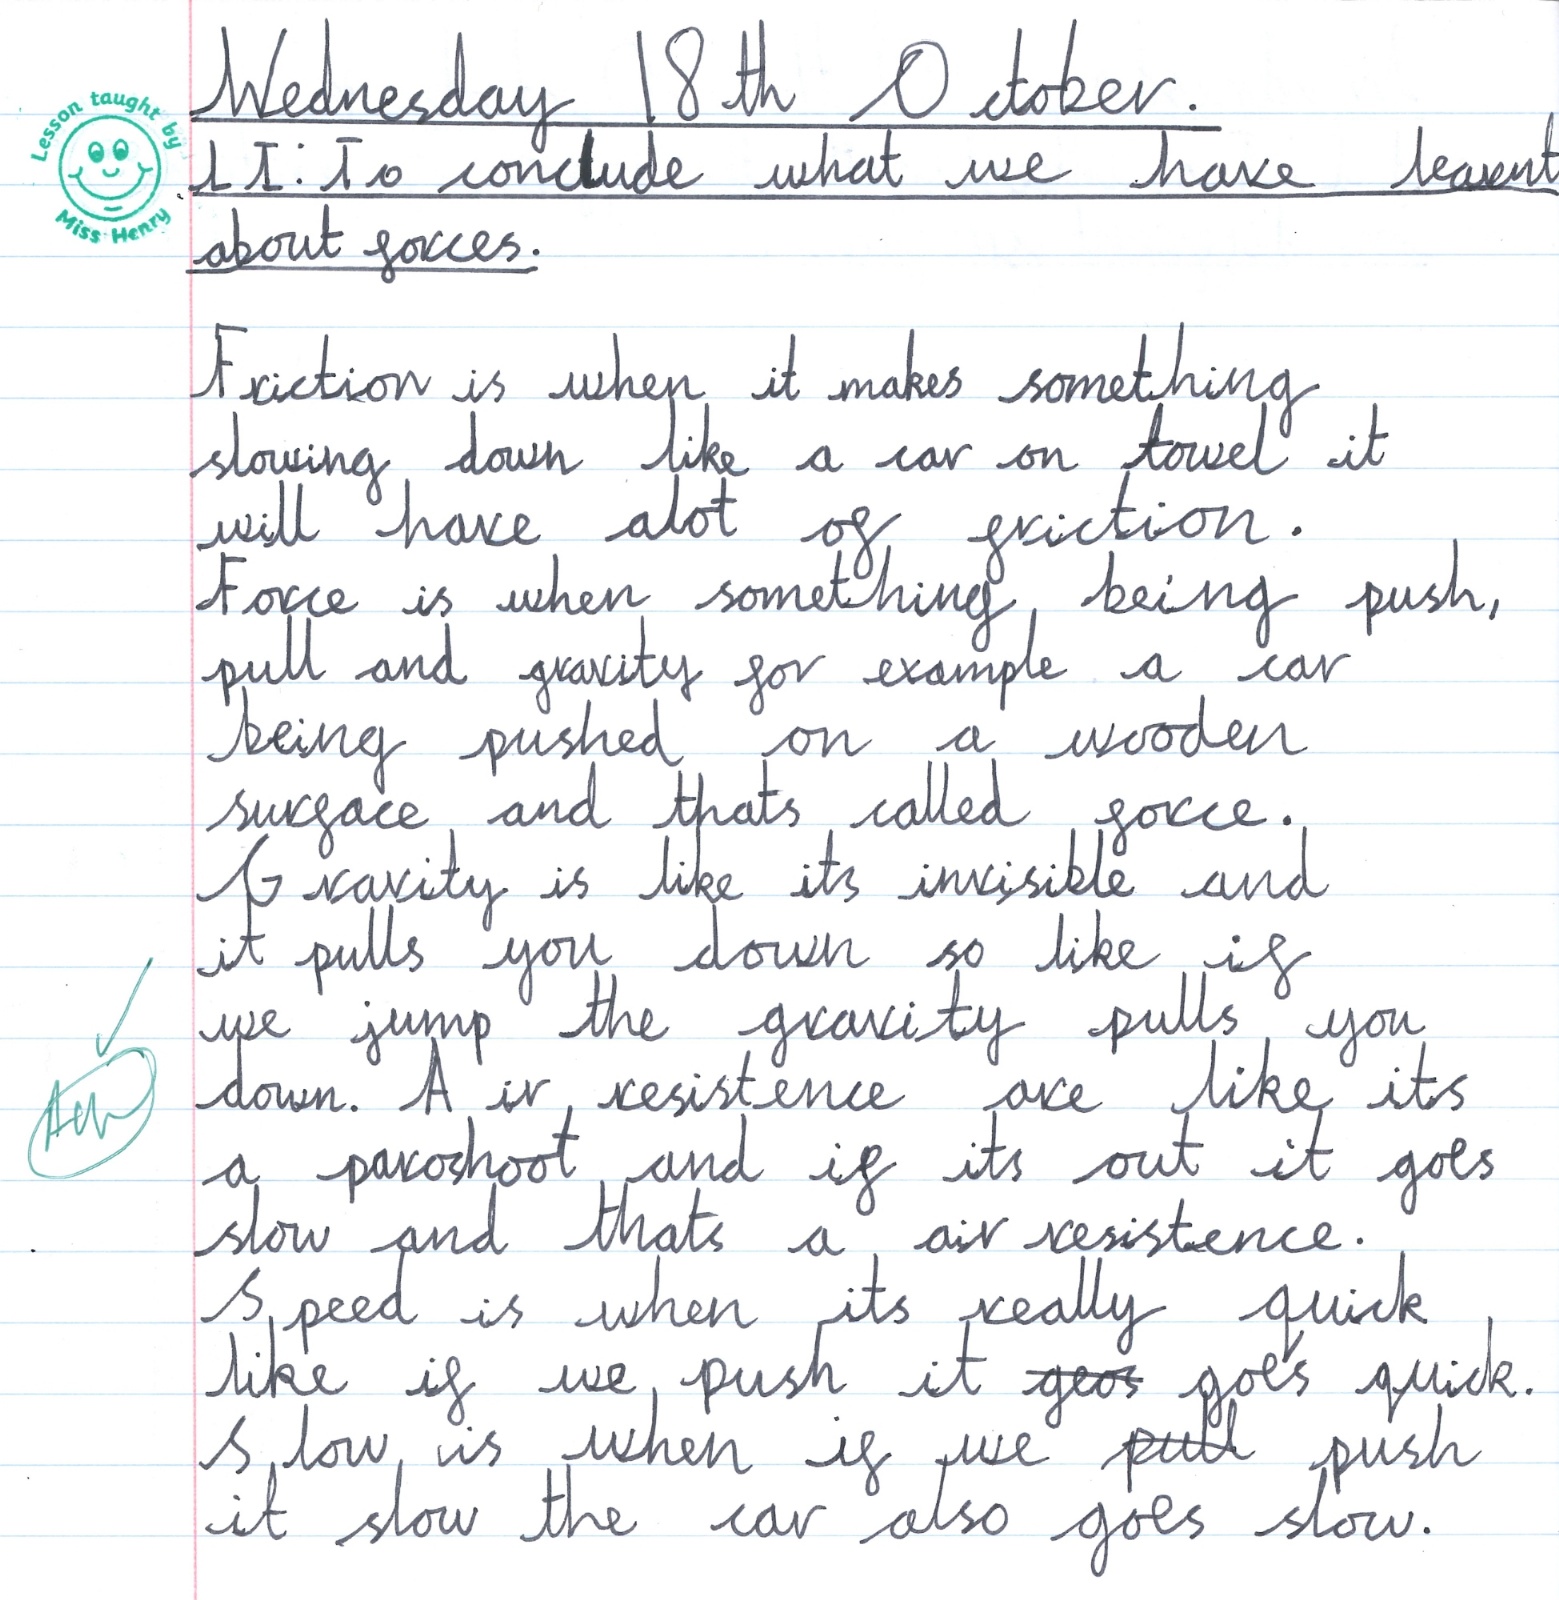 Wednesday 18th October.
Lesson taught by
Miss Henry
LI: To conclude what we have learnt
about forces.
Friction is when it makes something
slowing down like a car on towel it
will have alot of friction.
Force is when something being push,
pull and gravity for example a car
being pushed on a wooden
surface and thats called force.
Gravity is like its invisible and
it pulls you down so like if
we jump the gravity pulls you
down. Air resistence are like its
a paroshoot and if its out it goes
slow and thats a air resistence.
Speed is when its really quick
like if we push it geos goes quick.
Slow is when if we pull push
it slow the car also goes slow.